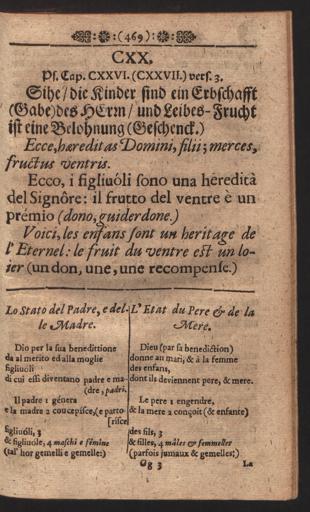 (469)
CXX.
Ps. Cap. CXXVI. (CXXVII.) vers. 3.
Sihe/ die Kinder sind ein Erbschafft
(Gabe) des HErrn/ und Leibes-Frucht
ist eine Belohnung (Geschenck.)
Ecce, hæreditas Domini, filii; merces,
fructus ventris.
Ecco, i figliuóli sono una heredità
del Signôre: il frutto del ventre è un
prémio (dono, guiderdone.)
Voici, les enfans sont un heritage de
l'Eternel: le fruit du ventre est un lo-
ier (un don, une, une recompense.)
Lo Stato del Padre, e del-
le Madre.
Dio per la sua benedittione
da al merito ed alla moglie
figliuóli
di cui essi diventano padre e ma-
(dre, padri.
Il padre 1 génera
e la madre 2 concepisce, (e parto-
risce
figliuóli, 3
& figliuole, 4 maschi e fémine
(tal' hor gemelli e gemelle:)
L' Etat du Pere & de la
Mere.
Dieu (par sa benediction)
donne au mari, & à la femme
des enfans,
dont ils deviennent pere, & mere.
Le pere 1 engendre,
& la mere 2 conçoit (& enfante)
des fils, 3
& filles, 4 mâles & femmelles
(parfois jumaux & gemelles:)
Gg 3
La